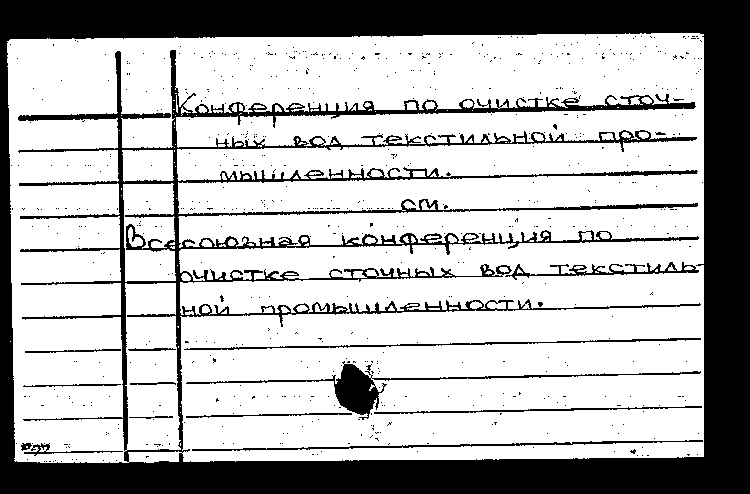 Конференция по очистке сточ-
ных вод текстильной про-
мышленности.
см.
Всесоюзная конференция по
очистке сточных вод текстиль-
ной промышленности.